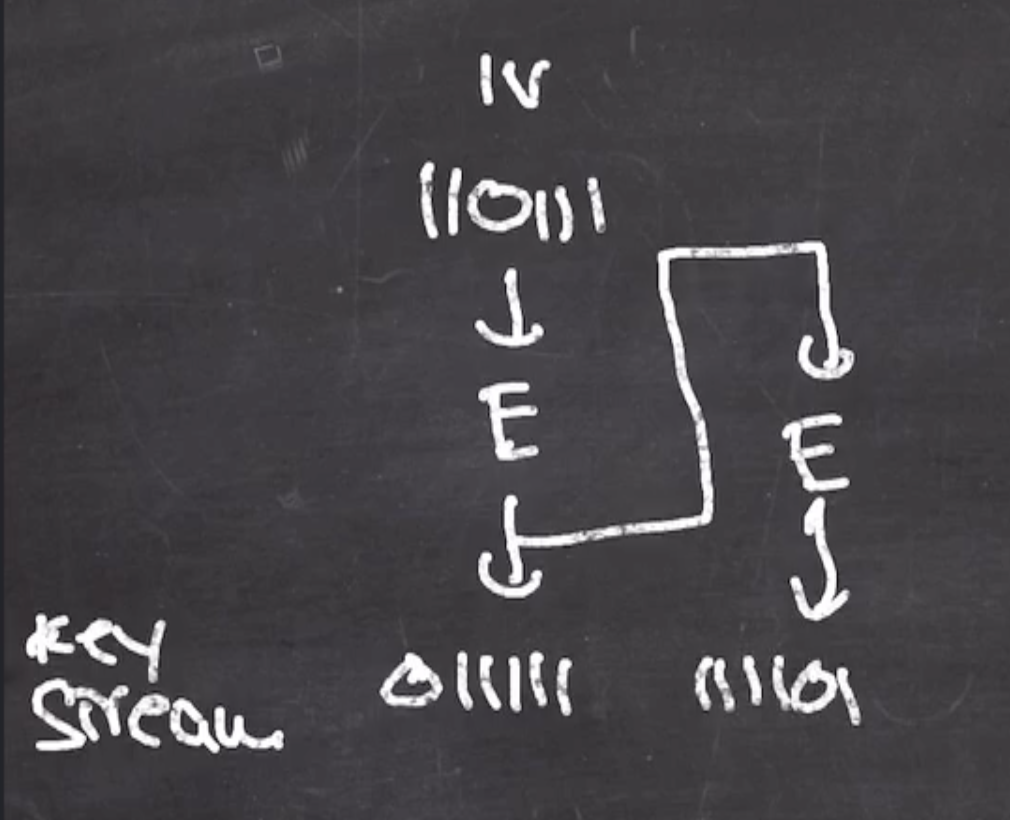 IV
110111
E
E
Key
Stream
0111111 1111101